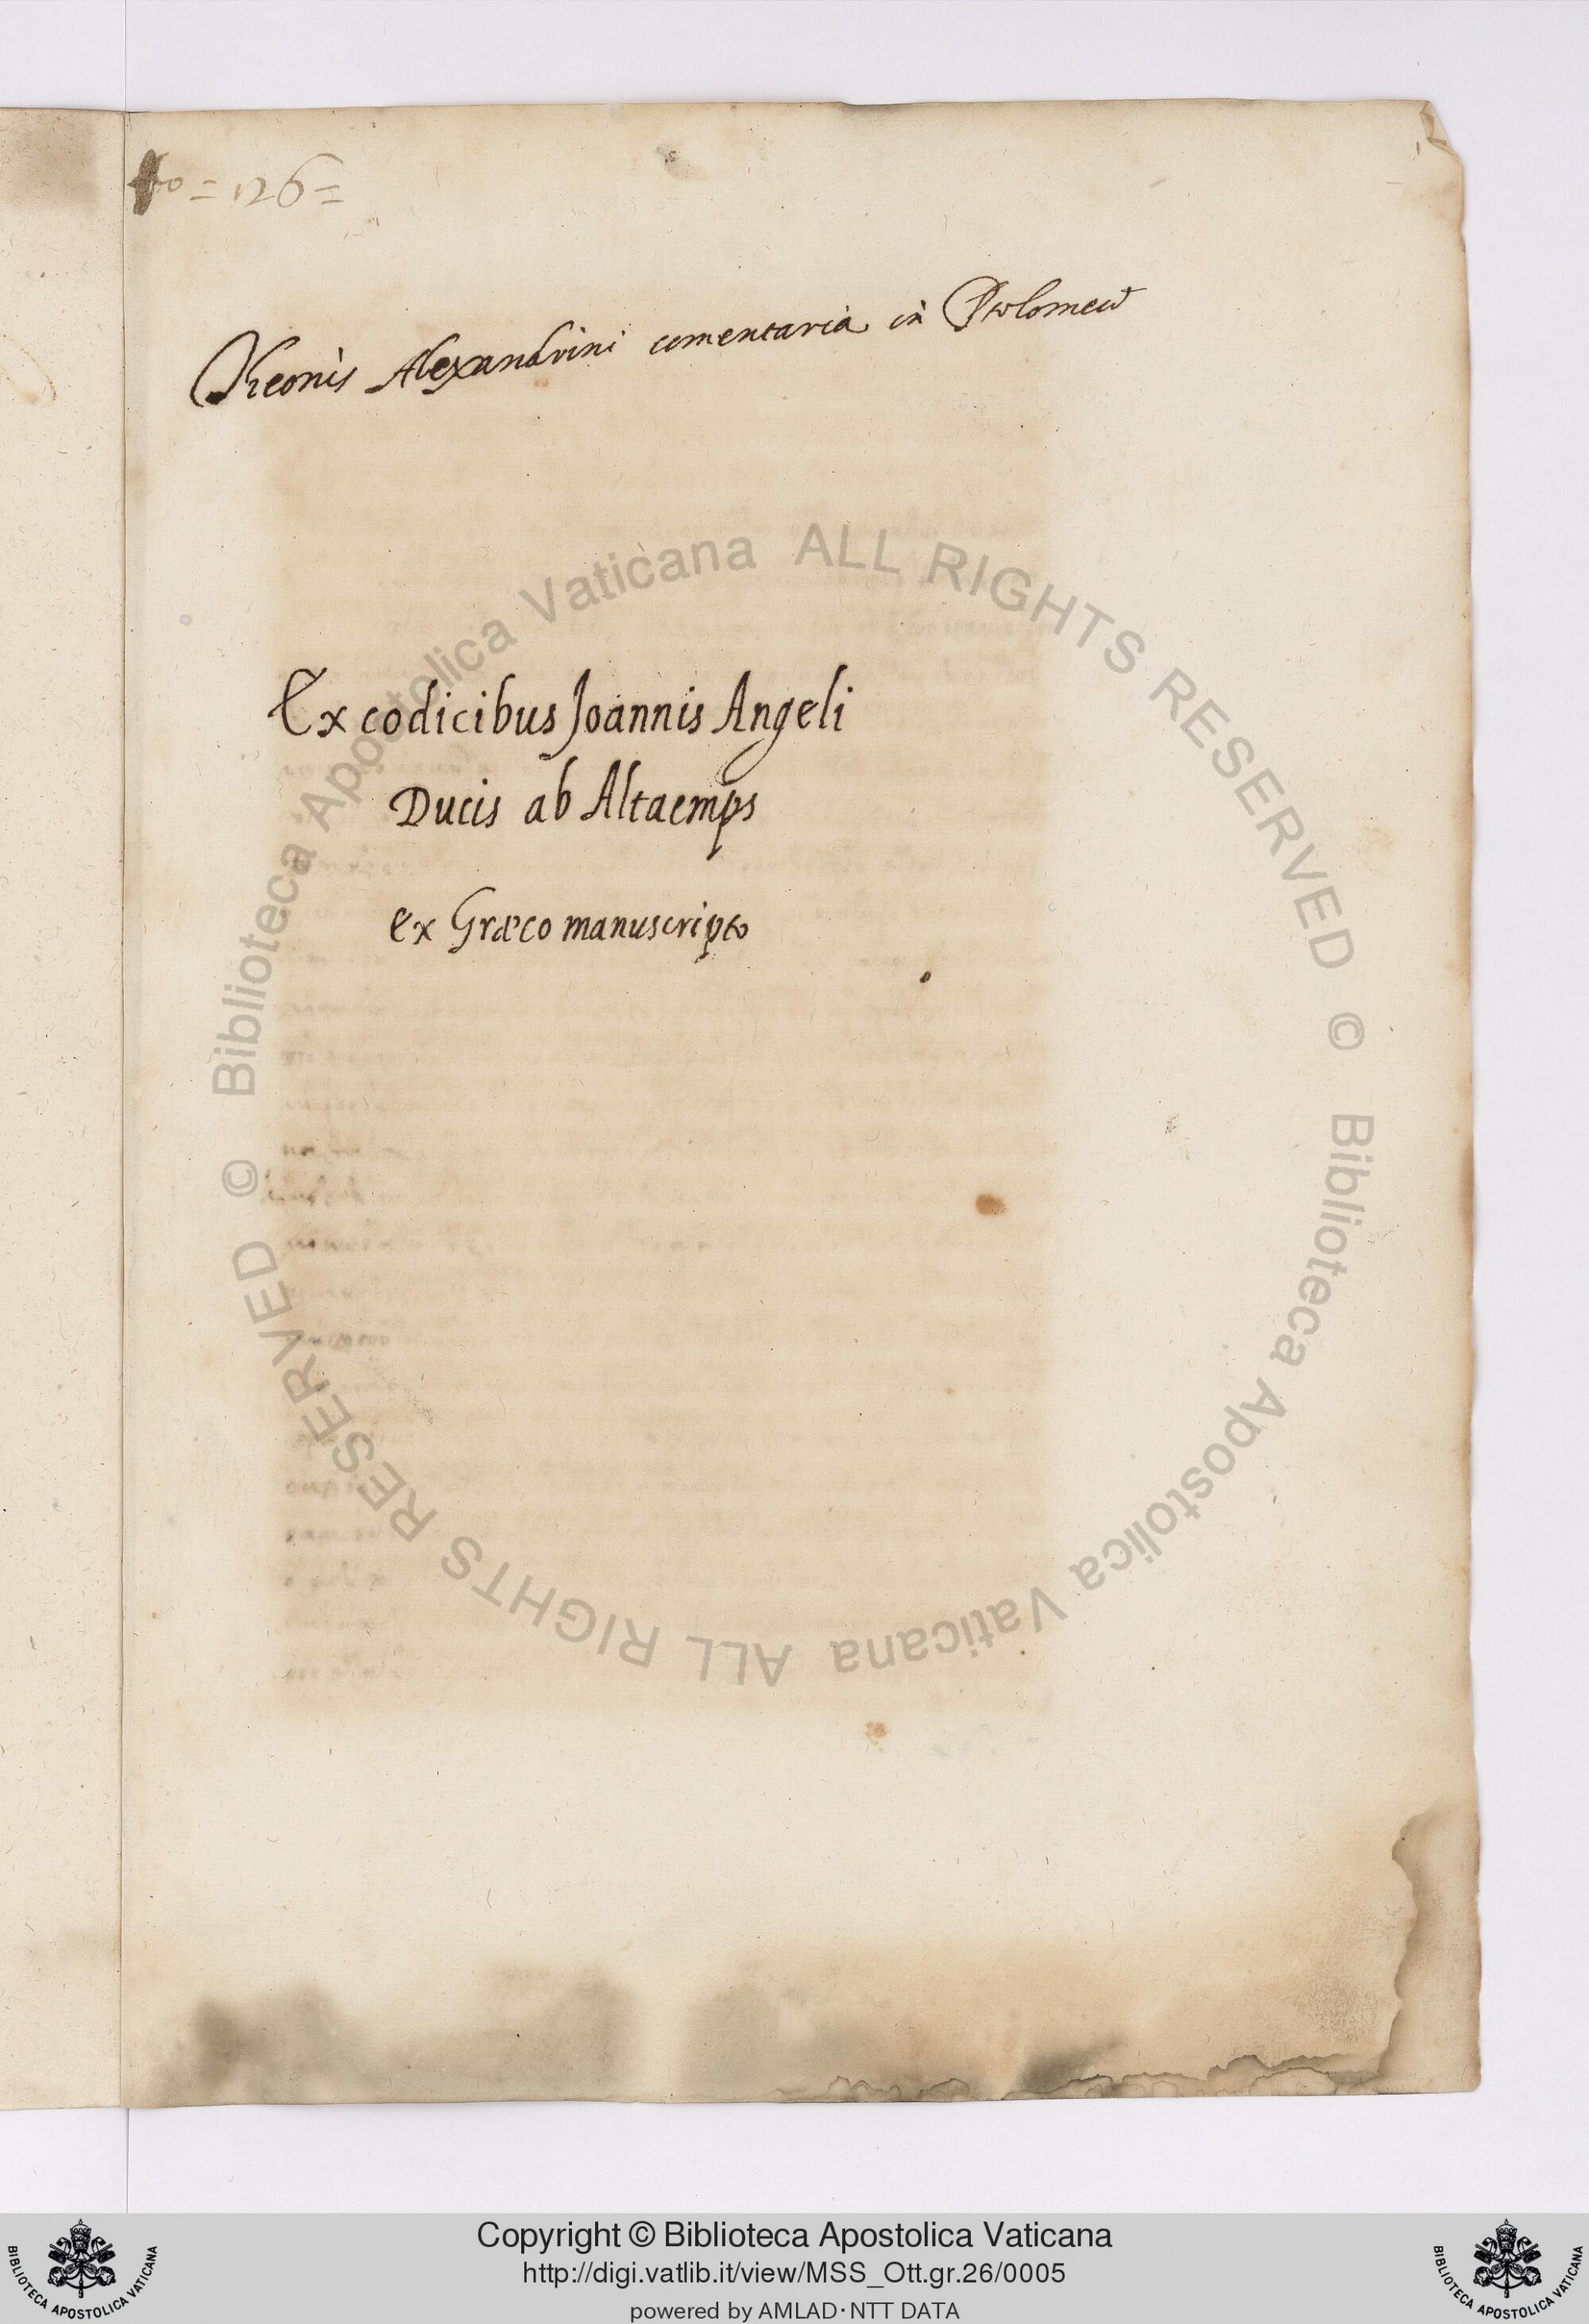 = 126 =
Theonis Alexandrini comentaria in Ptolomeū
Ex codicibus Joannis Angeli
Ducis ab Altaemps
ex Græco manuscripto
© Biblioteca Apostolica Vaticana ALL RIGHTS RESERVED
© Biblioteca Apostolica Vaticana ALL RIGHTS RESERVED
Copyright © Biblioteca Apostolica Vaticana
http://digi.vatlib.it/view/MSS_Ott.gr.26/0005
powered by AMLAD·NTT DATA
BIBLIOTECA APOSTOLICA VATICANA
BIBLIOTECA APOSTOLICA VATICANA